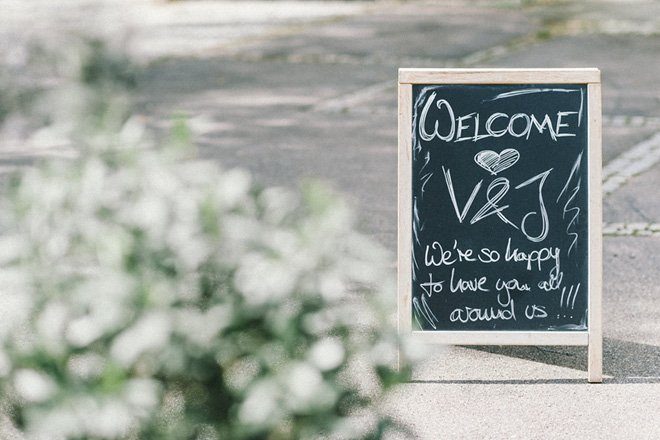 Welcome
V&J
We're so happy
to have you all
around us !!!